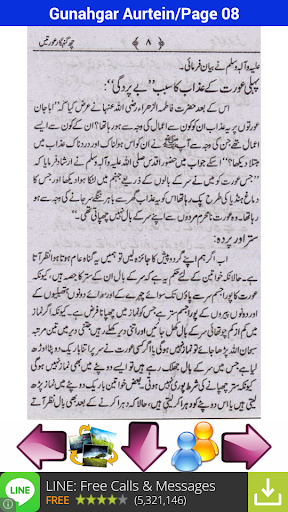 Gunahgar Aurtein/Page 08
چھ گنہگار عورتیں
﴿ ۸ ﴾
علیہ وآلہ وسلم نے بیان فرمائی۔
پہلی عورت کے عذاب کا سبب "بے پردگی":
اس کے بعد حضرت فاطمۃ الزہراء رضی اللہ عنہا نے عرض کیا کہ "ابا جان
عورتوں پر یہ عذاب ان کو کون سے اعمال کی وجہ سے ہو رہا تھا؟ ان کے کون سے ایسے
اعمال تھے جن کی وجہ سے آپ ﷺ نے ان کو اس ہولناک اور دردناک عذاب میں
مبتلا دیکھا؟" اس کے جواب میں حضور اقدس صلی اللہ علیہ وآلہ وسلم نے ارشاد فرمایا کہ
"جس عورت کو میں نے سر کے بالوں کے ذریعے جہنم میں لٹکا ہوا دیکھا اور جس کا
دماغ ہنڈیا کی طرح پک رہا تھا اس کو یہ عذاب گھر سے باہر ننگے سر جانے کی وجہ سے ہو
رہا تھا۔ وہ عورت نامحرم مردوں سے اپنے سر کے بال نہیں چھپاتی تھی۔"
ستر اور پردہ:
اب اگر ہم اپنے گرد و پیش کا جائزہ لیں تو ہمیں یہ گناہ عام ہوتا نظر آتا
ہے۔ حالانکہ خواتین کے لئے حکم یہ ہے کہ سر کے بال ان کے ستر کا حصہ ہیں، کیونکہ
عورت کا پورا جسم سر سے پاؤں تک سوائے چہرے کے اور دونوں ہتھیلیوں کے
اور دونوں پیروں کے پورا جسم ستر ہے جس کا نماز میں چھپانا فرض ہے۔ اگر نماز
میں کم از کم چوتھائی سر کے بال کھل جائیں اور اتنی دیر کھلے رہیں جتنی دیر میں تین مرتبہ
سبحان اللہ پڑھا جائے تو نماز نہیں ہوگی یا اگر کسی عورت نے سر پر اتنا باریک دوپٹہ اوڑھ
لیا جس میں سے سر کے بال جھلک رہے ہیں تو ایسے دوپٹے میں بھی نماز نہیں ہوگی
کیونکہ ستر چھپانے کی شرط پوری نہیں ہوئی۔ بعض خواتین باریک دوپٹے میں نماز پڑھ
لیتی ہیں یا اس دوپٹے کو دوہرا کر لیتی ہیں، حالانکہ دوہرا کرنے کے بعد بھی بال نظر آتے
LINE
LINE: Free Calls & Messages
FREE (5,321,146)